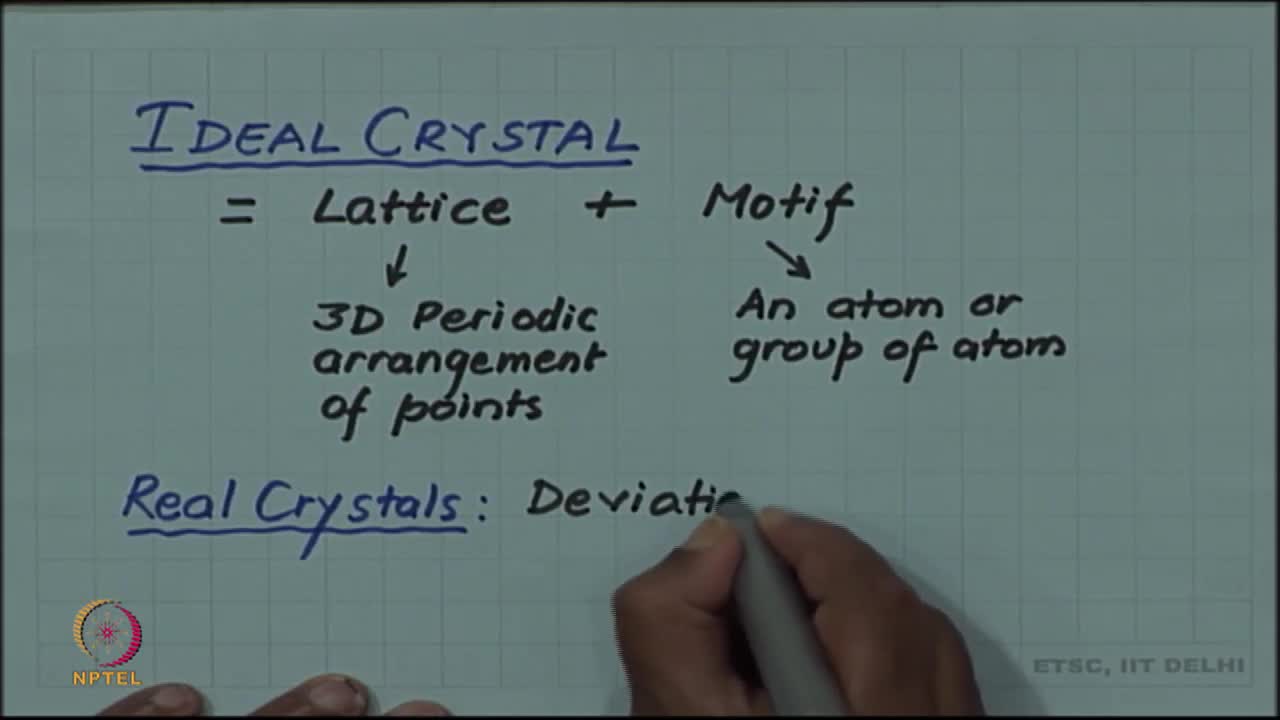 IDEAL CRYSTAL
= Lattice + Motif
3D Periodic
arrangement
of points
An atom or
group of atom
Real Crystals: Deviatio
NPTEL
ETSC, IIT DELHI